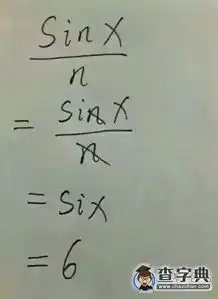 sin x
n
= sin x
n
= six
= 6
查字典
www.chazidian.com